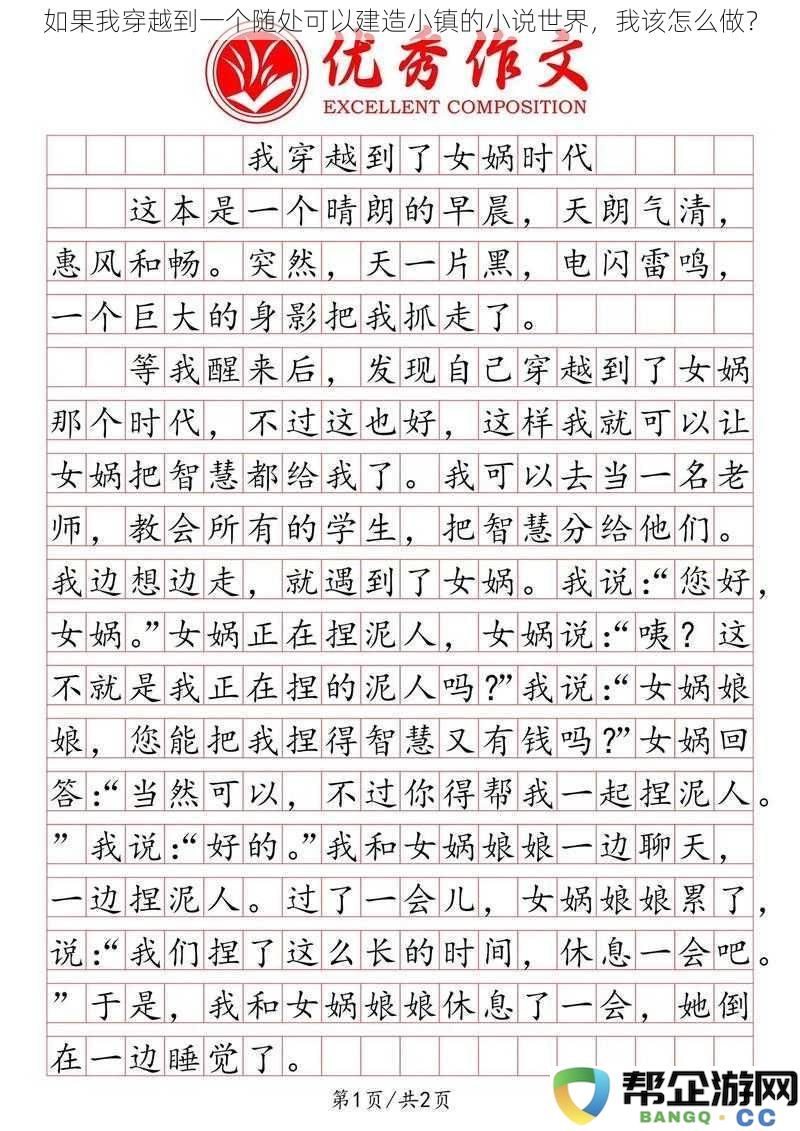 如果我穿越到一个随处可以建造小镇的小说世界，我该怎么做？
优秀作文
EXCELLENT COMPOSITION
我穿越到了女娲时代
这本是一个晴朗的早晨，天朗气清，
惠风和畅。突然，天一片黑，电闪雷鸣，
一个巨大的身影把我抓走了。
等我醒来后，发现自己穿越到了女娲
那个时代，不过这也好，这样我就可以让
女娲把智慧都给我了。我可以去当一名老
师，教会所有的学生，把智慧分给他们。
我边想边走，就遇到了女娲。我说：“您好，
女娲。”女娲正在捏泥人，女娲说：“咦？这
不就是我正在捏的泥人吗？”我说：“女娲娘
娘，您能把我捏得智慧又有钱吗？”女娲回
答：“当然可以，不过你得帮我一起捏泥人。
”我说：“好的。”我和女娲娘娘一边聊天，
一边捏泥人。过了一会儿，女娲娘娘累了，
说：“我们捏了这么长的时间，休息一会吧。
”于是，我和女娲娘娘休息了一会，她倒
在一边睡觉了。
第1页/共2页
帮企游网
BANGQ·CC